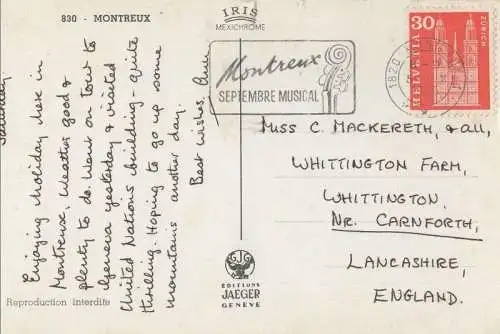 830 - MONTREUX
IRIS
MEXICHROME
Saturday
Enjoying holiday here in
Montreux, weather good &
plenty to do. Went on tour to
Geneva yesterday & visited
United Nations building - quite
thrilling. Hoping to go up some
mountains another day.
Best wishes,
Montreux
SEPTEMBRE MUSICAL
1820
30
HELVETIA
ZÜRICH
MISS C. MACKERETH, & all,
WHITTINGTON FARM,
WHITTINGTON,
NR. CARNFORTH,
LANCASHIRE,
ENGLAND.
EDITIONS
JAEGER
GENEVE
Reproduction interdite